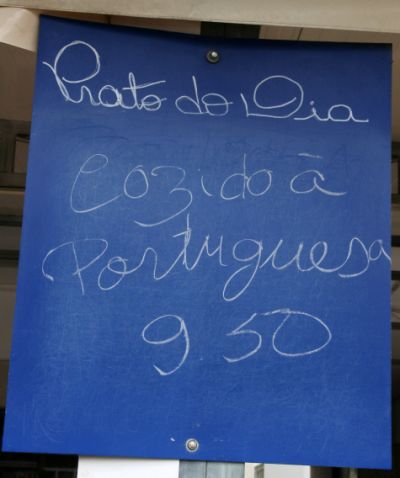 Prato do Dia
Cozido à
Portuguesa
9 50